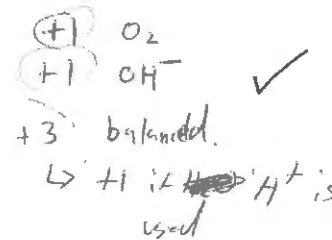 +1 O₂
+1 OH⁻
+3 balanced.
↳ +1 if H⁺ is
used